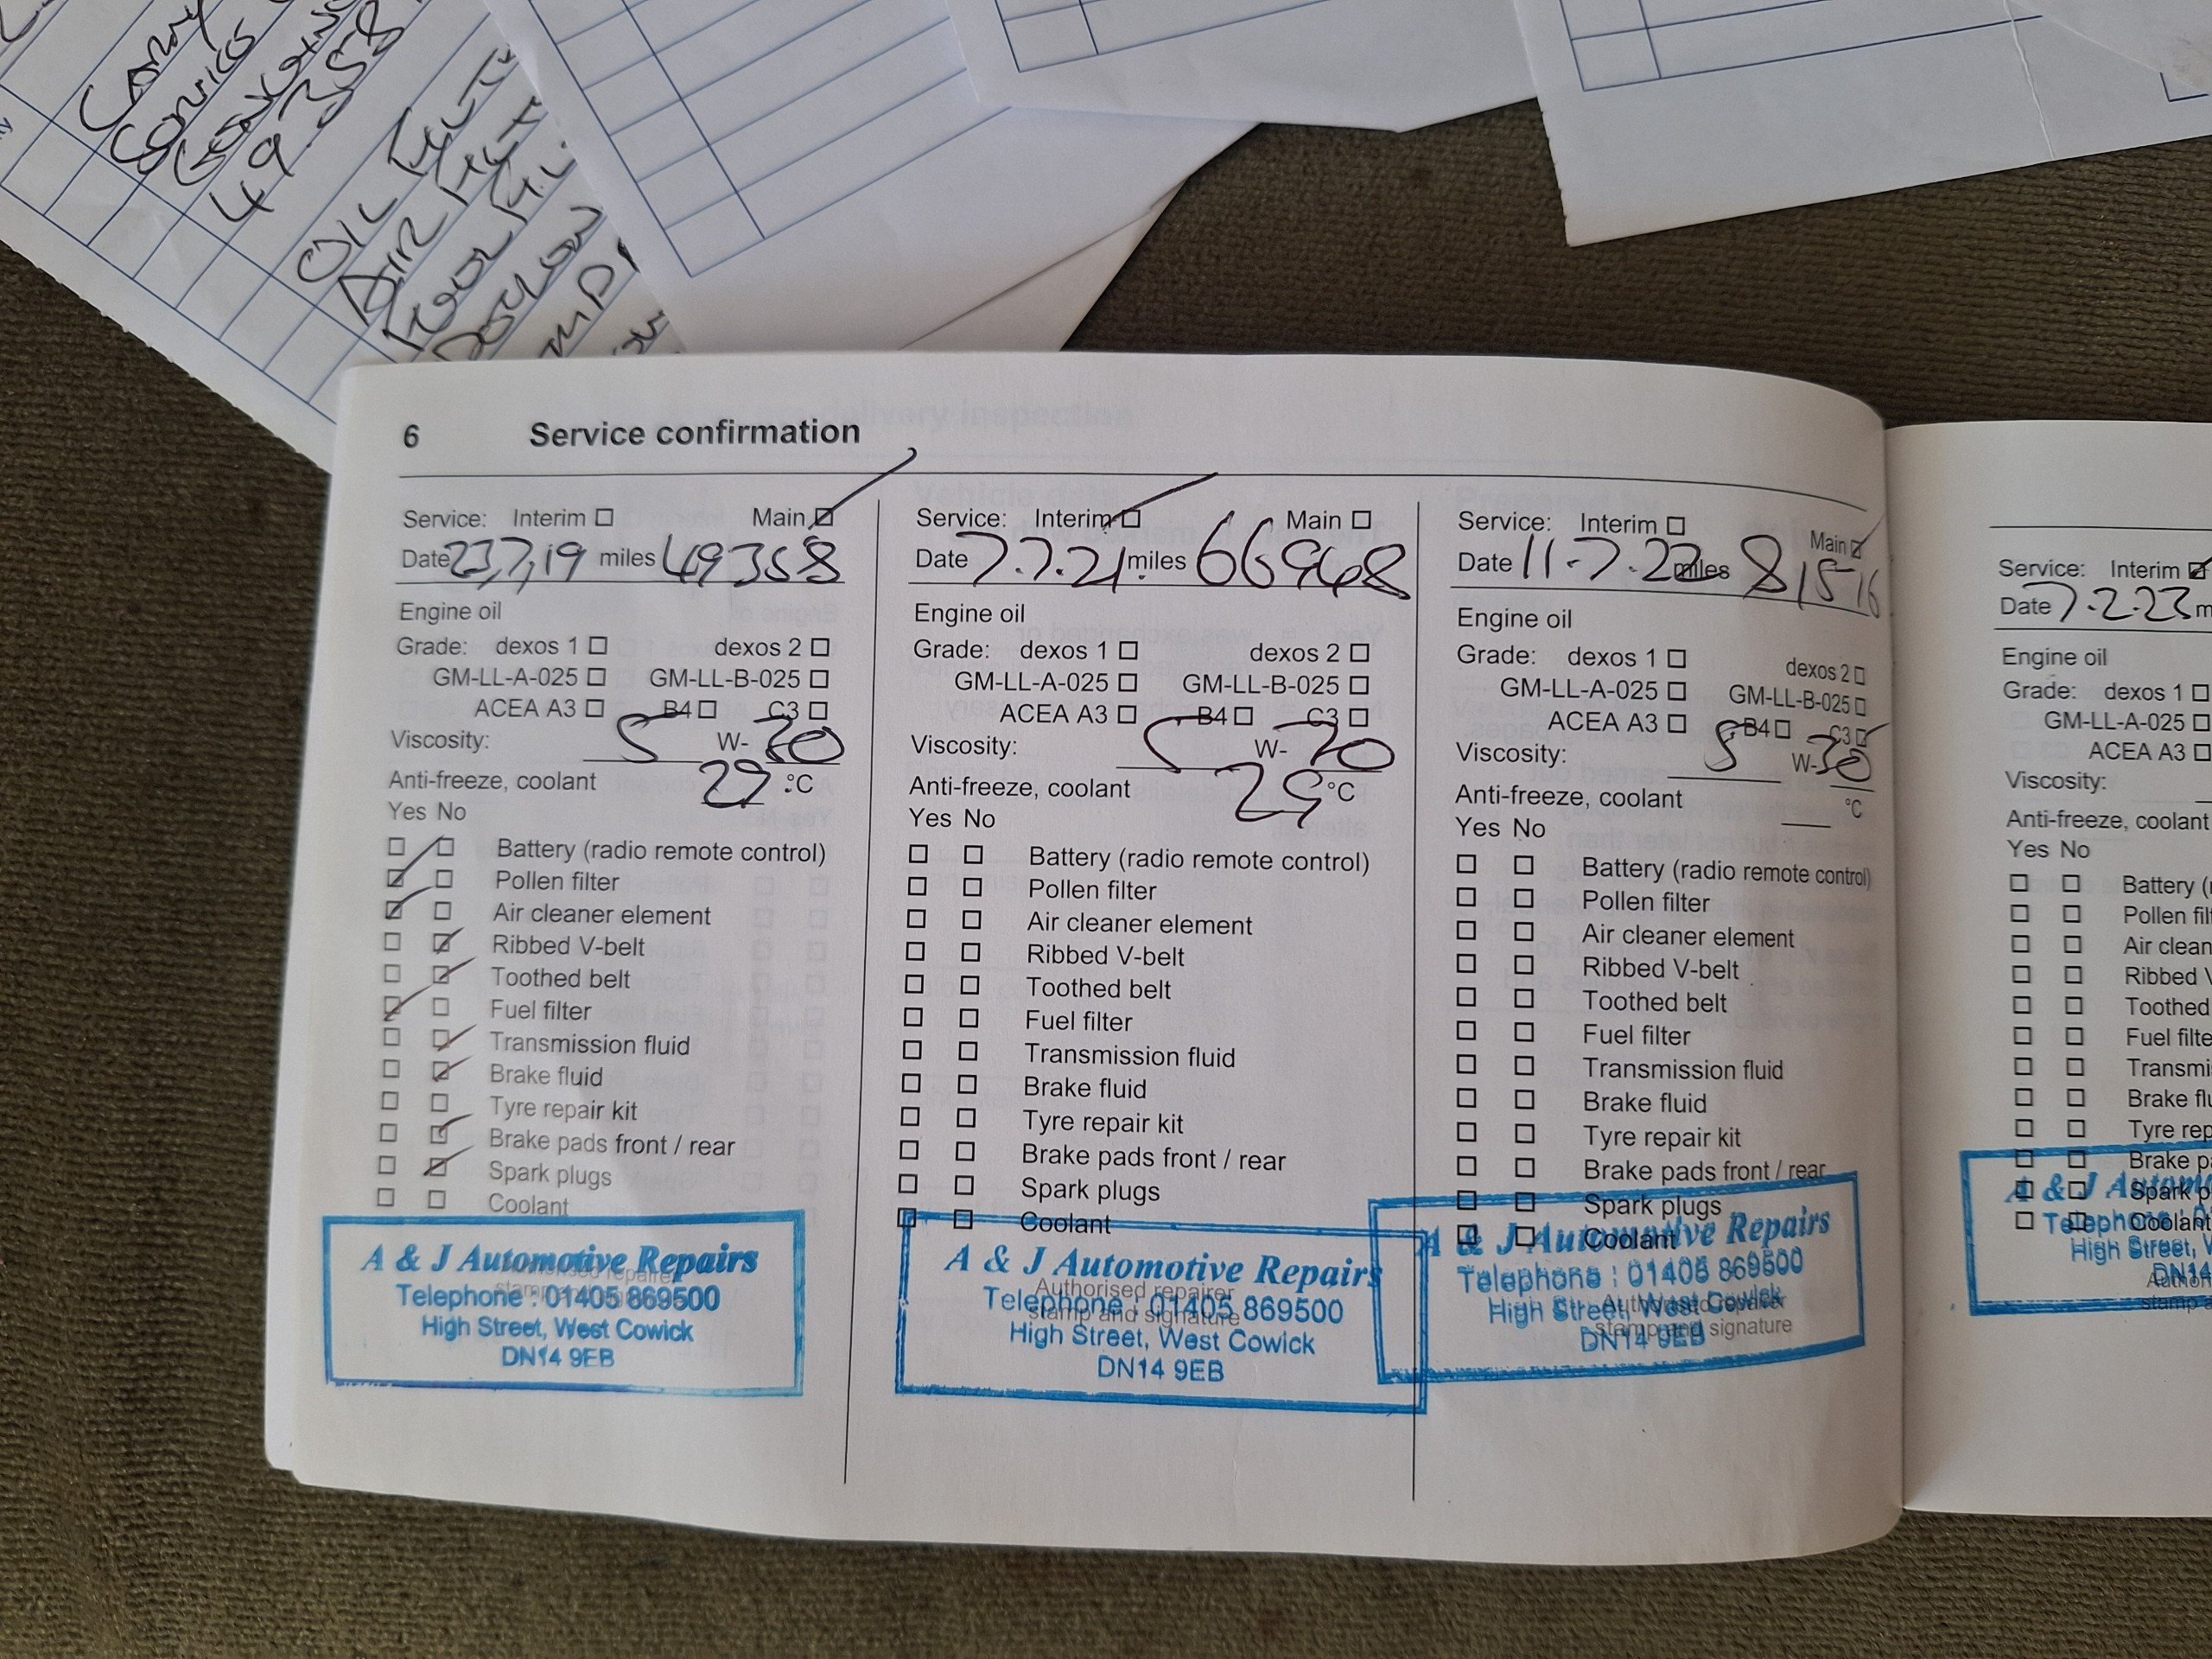 SERVICE
49358
OIL FILT
AIR FILT
FUEL FIL
POLLEN
6 Service confirmation
Service: Interim ☐ Main ☑
Date 23,7,19 miles 49358
Engine oil
Grade: dexos 1 ☐ dexos 2 ☐
GM-LL-A-025 ☐ GM-LL-B-025 ☐
ACEA A3 ☐ B4 ☐ C3 ☐
Viscosity: 5 W- 30
Anti-freeze, coolant 29 °C
Yes No
☐ ☐ Battery (radio remote control)
☑ ☐ Pollen filter
☑ ☐ Air cleaner element
☐ ☑ Ribbed V-belt
☐ ☑ Toothed belt
☑ ☐ Fuel filter
☐ ☑ Transmission fluid
☐ ☑ Brake fluid
☐ ☐ Tyre repair kit
☐ ☑ Brake pads front / rear
☐ ☑ Spark plugs
☐ ☐ Coolant
A & J Automotive Repairs
Telephone : 01405 869500
High Street, West Cowick
DN14 9EB
Service: Interim ☑ Main ☐
Date 7.7.21. miles 66968
Engine oil
Grade: dexos 1 ☐ dexos 2 ☐
GM-LL-A-025 ☐ GM-LL-B-025 ☐
ACEA A3 ☐ B4 ☐ C3 ☐
Viscosity: 5 W- 30
Anti-freeze, coolant 29 °C
Yes No
☐ ☐ Battery (radio remote control)
☐ ☐ Pollen filter
☐ ☐ Air cleaner element
☐ ☐ Ribbed V-belt
☐ ☐ Toothed belt
☐ ☐ Fuel filter
☐ ☐ Transmission fluid
☐ ☐ Brake fluid
☐ ☐ Tyre repair kit
☐ ☐ Brake pads front / rear
☐ ☐ Spark plugs
☐ ☐ Coolant
A & J Automotive Repairs
Authorised repairer
Telephone : 01405 869500
stamp and signature
High Street, West Cowick
DN14 9EB
Service: Interim ☐ Main ☑
Date 11-7.22 miles 81516
Engine oil
Grade: dexos 1 ☐ dexos 2 ☐
GM-LL-A-025 ☐ GM-LL-B-025 ☐
ACEA A3 ☐ B4 ☐ C3 ☑
Viscosity: 5 W- 30
Anti-freeze, coolant °C
Yes No
☐ ☐ Battery (radio remote control)
☐ ☐ Pollen filter
☐ ☐ Air cleaner element
☐ ☐ Ribbed V-belt
☐ ☐ Toothed belt
☐ ☐ Fuel filter
☐ ☐ Transmission fluid
☐ ☐ Brake fluid
☐ ☐ Tyre repair kit
☐ ☐ Brake pads front / rear
☐ ☐ Spark plugs
☐ ☐ Coolant
A & J Automotive Repairs
Telephone : 01405 869500
High Street, West Cowick
Authorised repairer
stamp and signature
DN14 9EB
Service: Interim ☑
Date 7.2.23 m
Engine oil
Grade: dexos 1 ☐
GM-LL-A-025 ☐
ACEA A3 ☐
Viscosity:
Anti-freeze, coolant
Yes No
☐ ☐ Battery (r
☐ ☐ Pollen filt
☐ ☐ Air clean
☐ ☐ Ribbed V
☐ ☐ Toothed
☐ ☐ Fuel filte
☐ ☐ Transmi
☐ ☐ Brake flu
☐ ☐ Tyre rep
☐ ☐ Brake pa
☐ ☐ Spark p
☐ ☐ Coolant
A & J Autom
Telephon
High Street, W
DN14
Author
stamp a